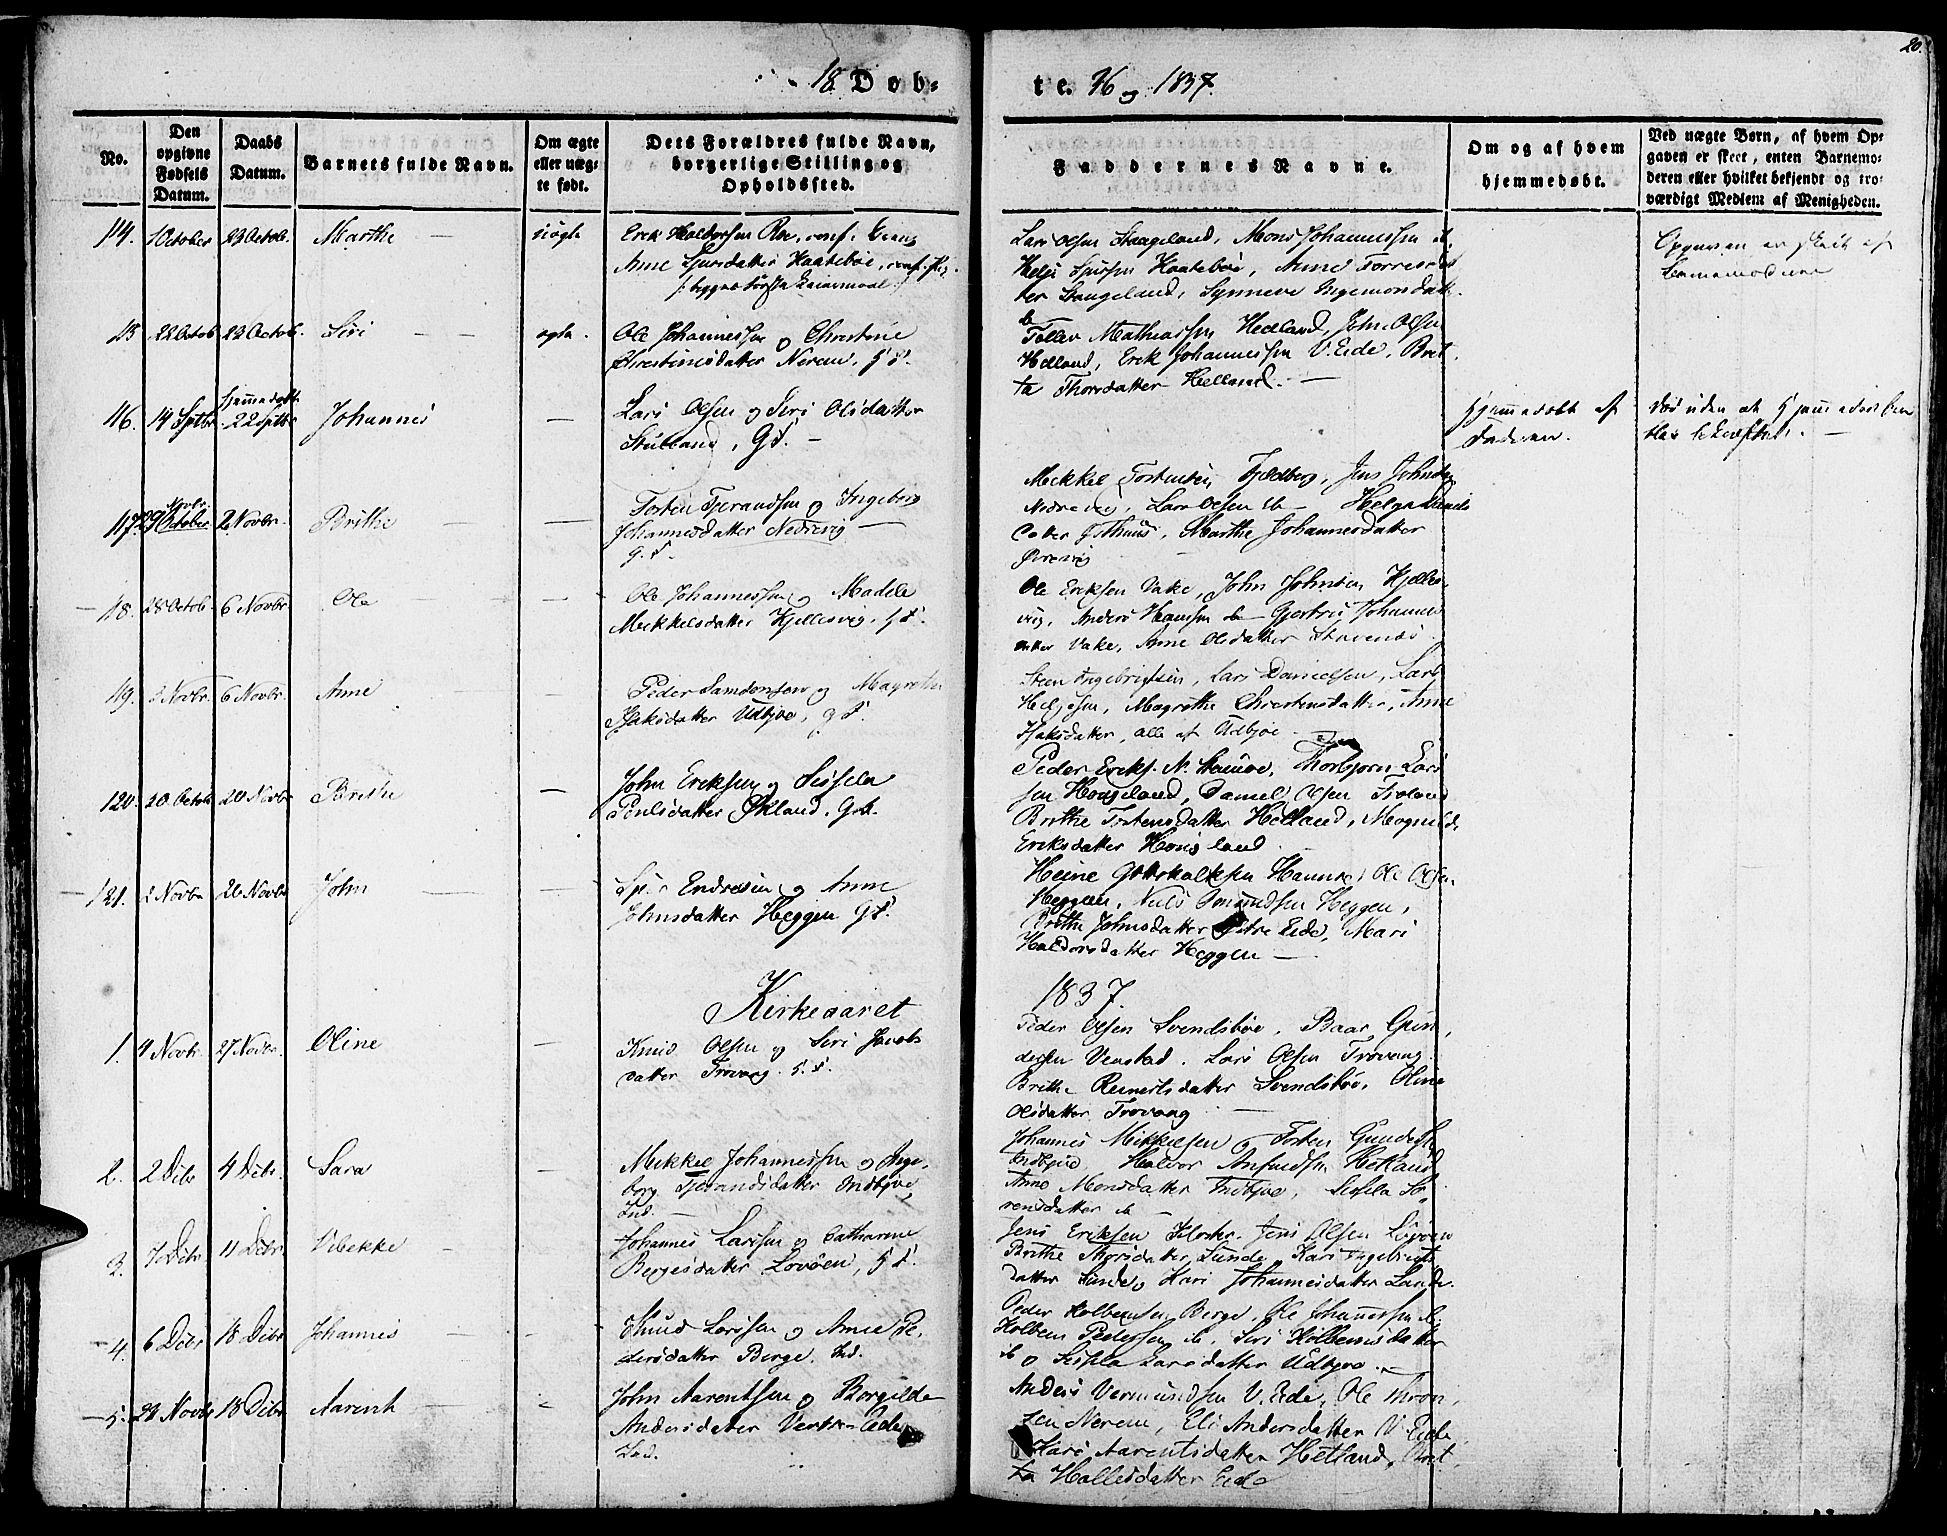 20.
18 Døb-
te. 36 og 1837.
No.
Den opgivne Fødsels Datum.
Daabs Datum.
Barnets fulde Navn.
Om ægte eller uægte født.
Dets Forældres fulde Navn, borgerlige Stilling og Opholdssted.
Faddernes Navne.
Om og af hvem hjemmedøbt.
Ved uægte Børn, af hvem Opgaven er skeet, enten Barnemoderen eller hvilket bekjendt og troværdigt Medlem af Menigheden.
114. 1 October 23 Octob. Marthe — uægte
Erik Haldorsen Røe, conf.
Anne Sjursdatter Haatebøe, conf.
Lars Olsen Stangeland, Mons Johannessen
Helje Sjursen Haatebøe, Anne Torresdat
ter Stangeland, Synneve Ingemonsdatt.
Opgaven er skeet af
Barnemoderen
115 22 Octob. 23 Octob. Siri — — ægte.
Ole Johannessen og Christine
Christensdatter Nerem, G. F.
Tollev Mathiassen Hedland, John Olsen
Helland, Erik Johannessen V. Eide, Brit
ta Thorsdatter Helland. —
116. 14 Sptbr. hjemmedøbt 22 Sptbr Johannes —
Lars Olsen og Siri Olsdatter
Stulland, G. F. —
Hjemmedøbt af
Faderen.
død uden at Hjemmedaaben
blev bekræftet. —
117. 29 October 2 Novbr. Brithe —
Tosten Tjerandsen og Ingeborg
Johannesdatter Nedrevig —
G. F.
Mikkel Tostensen Fjeldberg, Jens Johnsen
Nedrevig, Lars Olsen ib Helga
datter Østhuus, Marthe Johannesdatter
Øvrevig
118. 28 Octob. 6 Novbr. Ole — —
Ole Johannessen og Madele
Mikkelsdatter Hjellesvig, G. F.
Ole Eriksen Vake, John Johnsen Hjelles
vig, Anders Hansen ib Gjertrud Johannes
datter Vake, Anne Olsdatter
119. 6 Novbr. Anne —
Peder Samsonsen og Magrethe
Isaksdatter Udbjoe, G. F.
Steen Ingebrigtsen, Lars Danielsen, Lars
Heljesen, Magrethe Christensdatter, Anne
Isaksdatter, alle af Udbjoe —
120 20 Octob 20 Novbr Brithe —
John Eriksen og Sissela
Poulsdatter Økland. Gb.
Peder Eriks. N. Thorbjørn Lars
sen Haugeland, Daniel Olsen
Brithe Tostensdatter Helland, Magnilde
Eriksdatter
121. 2 Novbr 20 Novbr John — —
Endresen og Anne
Johnsdatter Heggen G. F.
Heine Gotskalksen Ole Olsen
Heggen, Niels Heggen,
Brithe Johnsdatter Eide, Mari
Haldorsdatter Heggen —
Kirkeaaret
1837.
1. 4 Novbr. 27 Novbr. Oline —
Knud Olsen og Siri Jacobs
datter Trovaag. G. F.
Peder Olsen Svendsbøe. Baar Gun
dersen Lars Olsen Trovaag.
Brithe Reinertsdatter Svendsbøe, Oline
Olsdatter Trovaag —
2. 2 Dcbr 4 Dcbr. Sara —
Mikkel Johannessen og Inge
borg Tjerandsdatter Indbjoe,
Ind. —
Johannes Mikkelsen og Tosten
Indbjoe, Halvor Hetland
Anne Monsdatter Indbjoe, Sissela Sø
rensdatter ib —
3. 7 Dcbr 11 Dcbr. Vibekke —
Johannes Larssen og Catharine
Børgesdatter Lovøen, G. F.
Jens Eriksen Kloster. Jens Olsen Lovøen
Brithe Thorsdatter Sunde, Kari Ingebrigts
datter Sunde og Kari Johannesdatter Sande.
4. 6 Dcbr 18 Dcbr. Johannes —
Knud Larssen og Anne Pe
dersdatter Berge. Ind.
Peder Holbensen Berge. Ole Johannessen ib
Holben Pedersen ib, Siri Holbensdatter
ib og Sissela Larsdatter Udbjoe. —
5. 29 Novbr 18 Dcbr Aarent —
John Aarentsen og Borgilde
Andersdatter Vestre Eide
Ind.
Anders Vermundsen V. Eide, Ole Thron
sen Nerem, Eli Andersdatter V. Eide
Kari Aarentsdatter Hetland, Brit
ta Hallesdatter Eide